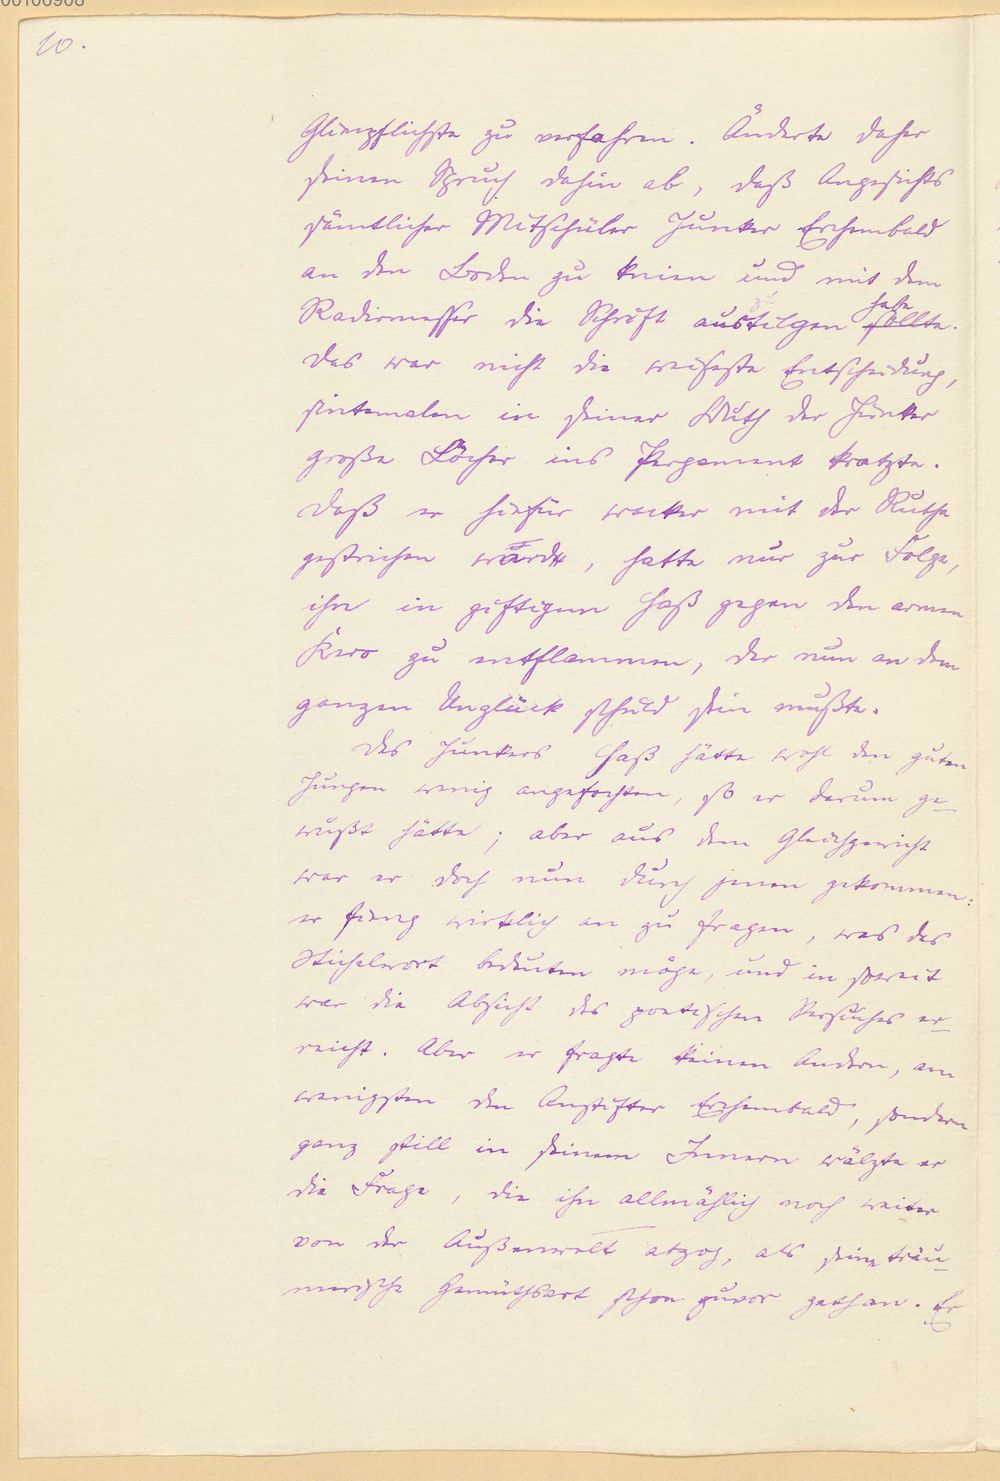 00106908
10.
Glimpflichste zu verfahren. Änderte daher
seinen Spruch dahin ab, daß Angesichts
sämtlicher Mitschüler Junker Erchembald
an den Boden zu knien und mit dem
habe
Radirmesser die Schrift austilgen sollte.
Das war nicht die weiseste Entscheidung,
sintemalen in seiner Wuth der Junker
große Löcher ins Pergament kratzte.
Daß er hiefür wacker mit der Ruthe
gestrichen ward, hatte nur zur Folge,
ihn in giftigem Haß gegen den armen
Kero zu entflammen, der nun an dem
ganzen Unglück schuld sein mußte.
Des Junkers Haß hätte wohl den guten
Jungen wenig angefochten, so er darum ge-
wußt hätte; aber aus dem Gleichgewicht
war er doch nun durch jenen gekommen:
er fieng wirklich an zu fragen, was das
Stichelwort bedeuten möge, und in soweit
war die Absicht des poetischen Versuches er-
reicht. Aber er fragte keinen Andern, am
wenigsten den Anstifter Erchembald, sondern
ganz still in seinem Innern wälzte er
die Frage, die ihn allmählich noch weiter
von der Außenwelt abzog, als seine träu-
merische Gemüthsart schon zuvor gethan. Er